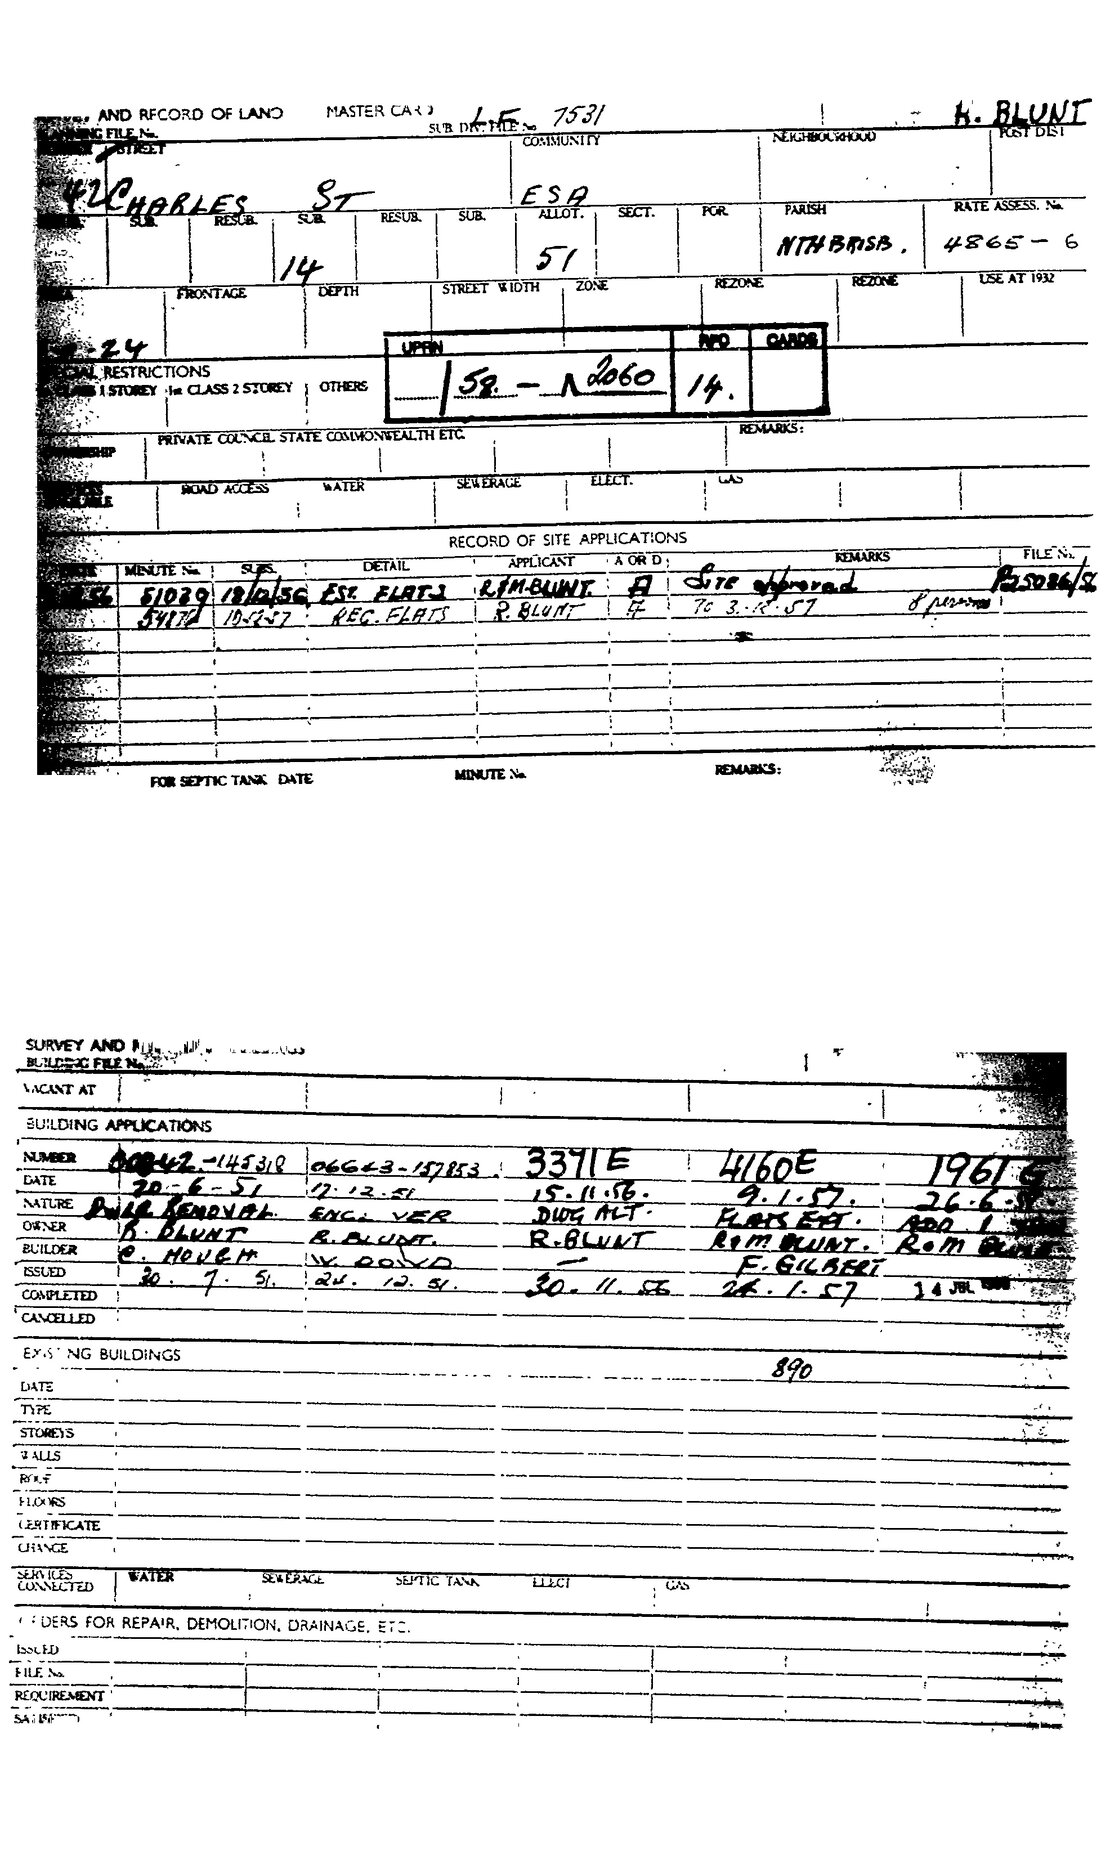 AND RECORD OF LAND MASTER CARD
PLANNING FILE No. SUB DIV. FILE No 7531 BLUNT
STREET COMMUNITY NEIGHBOURHOOD POST DIST
42 CHARLES ST ESA
SUB. RESUB. SUB. RESUB. SUB. ALLOT. SECT. POR. PARISH RATE ASSESS. No.
14 51 NTH BRISB. 4865-6
FRONTAGE DEPTH STREET WIDTH ZONE REZONE REZONE USE AT 1932
-24
UPRN RPD CARDS
58 - 2060 14.
RESTRICTIONS
CLASS 1 STOREY 1st CLASS 2 STOREY OTHERS
PRIVATE COUNCIL STATE COMMONWEALTH ETC. REMARKS:
ROAD ACCESS WATER SEWERAGE ELECT. GAS
RECORD OF SITE APPLICATIONS
MINUTE No. SUBS. DETAIL APPLICANT A OR D REMARKS FILE No.
56 51039 18/12/56 EST. FLATS R & M BLUNT. A Site approved P25086/56
REG. FLATS R. BLUNT A TO 3.12.57 8 persons
FOR SEPTIC TANK DATE MINUTE No. REMARKS:
SURVEY AND
BUILDING FILE No.
VACANT AT
BUILDING APPLICATIONS
NUMBER -145318 -157853 3371E 4160E 1961
DATE 20-6-51 17.12.51 15.11.56. 9.1.57. 26.6.
NATURE REMOVAL ENCL VER DWG ALT. FLATS EXT. ADD 1
OWNER R. BLUNT R. BLUNT. R. BLUNT R & M BLUNT. R & M
BUILDER C. HOUGH W. DOWD — F. GILBERT
ISSUED 30. 7. 51. 24. 12. 51. 30. 11. 56 1.57 14 JUL
COMPLETED
CANCELLED
EXISTING BUILDINGS 890
DATE
TYPE
STOREYS
WALLS
ROOF
FLOORS
CERTIFICATE
CHANGE
SERVICES CONNECTED WATER SEWERAGE SEPTIC TANK ELECT GAS
ORDERS FOR REPAIR, DEMOLITION, DRAINAGE, ETC.
ISSUED
FILE No.
REQUIREMENT